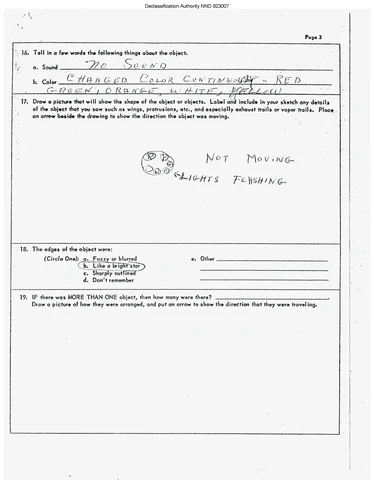 Declassification Authority NND 823007
Page 3
16. Tell in a few words the following things about the object.
a. Sound NO SOUND
b. Color CHANGED COLOR CONTINUOUSLY - RED
GREEN, ORANGE, WHITE, YELLOW
17. Draw a picture that will show the shape of the object or objects. Label and include in your sketch any details
of the object that you saw such as wings, protrusions, etc., and especially exhaust trails or vapor trails. Place
an arrow beside the drawing to show the direction the object was moving.
NOT MOVING
LIGHTS FLASHING
18. The edges of the object were:
(Circle One): a. Fuzzy or blurred e. Other
b. Like a bright star
c. Sharply outlined
d. Don't remember
19. IF there was MORE THAN ONE object, then how many were there?
Draw a picture of how they were arranged, and put an arrow to show the direction that they were traveling.